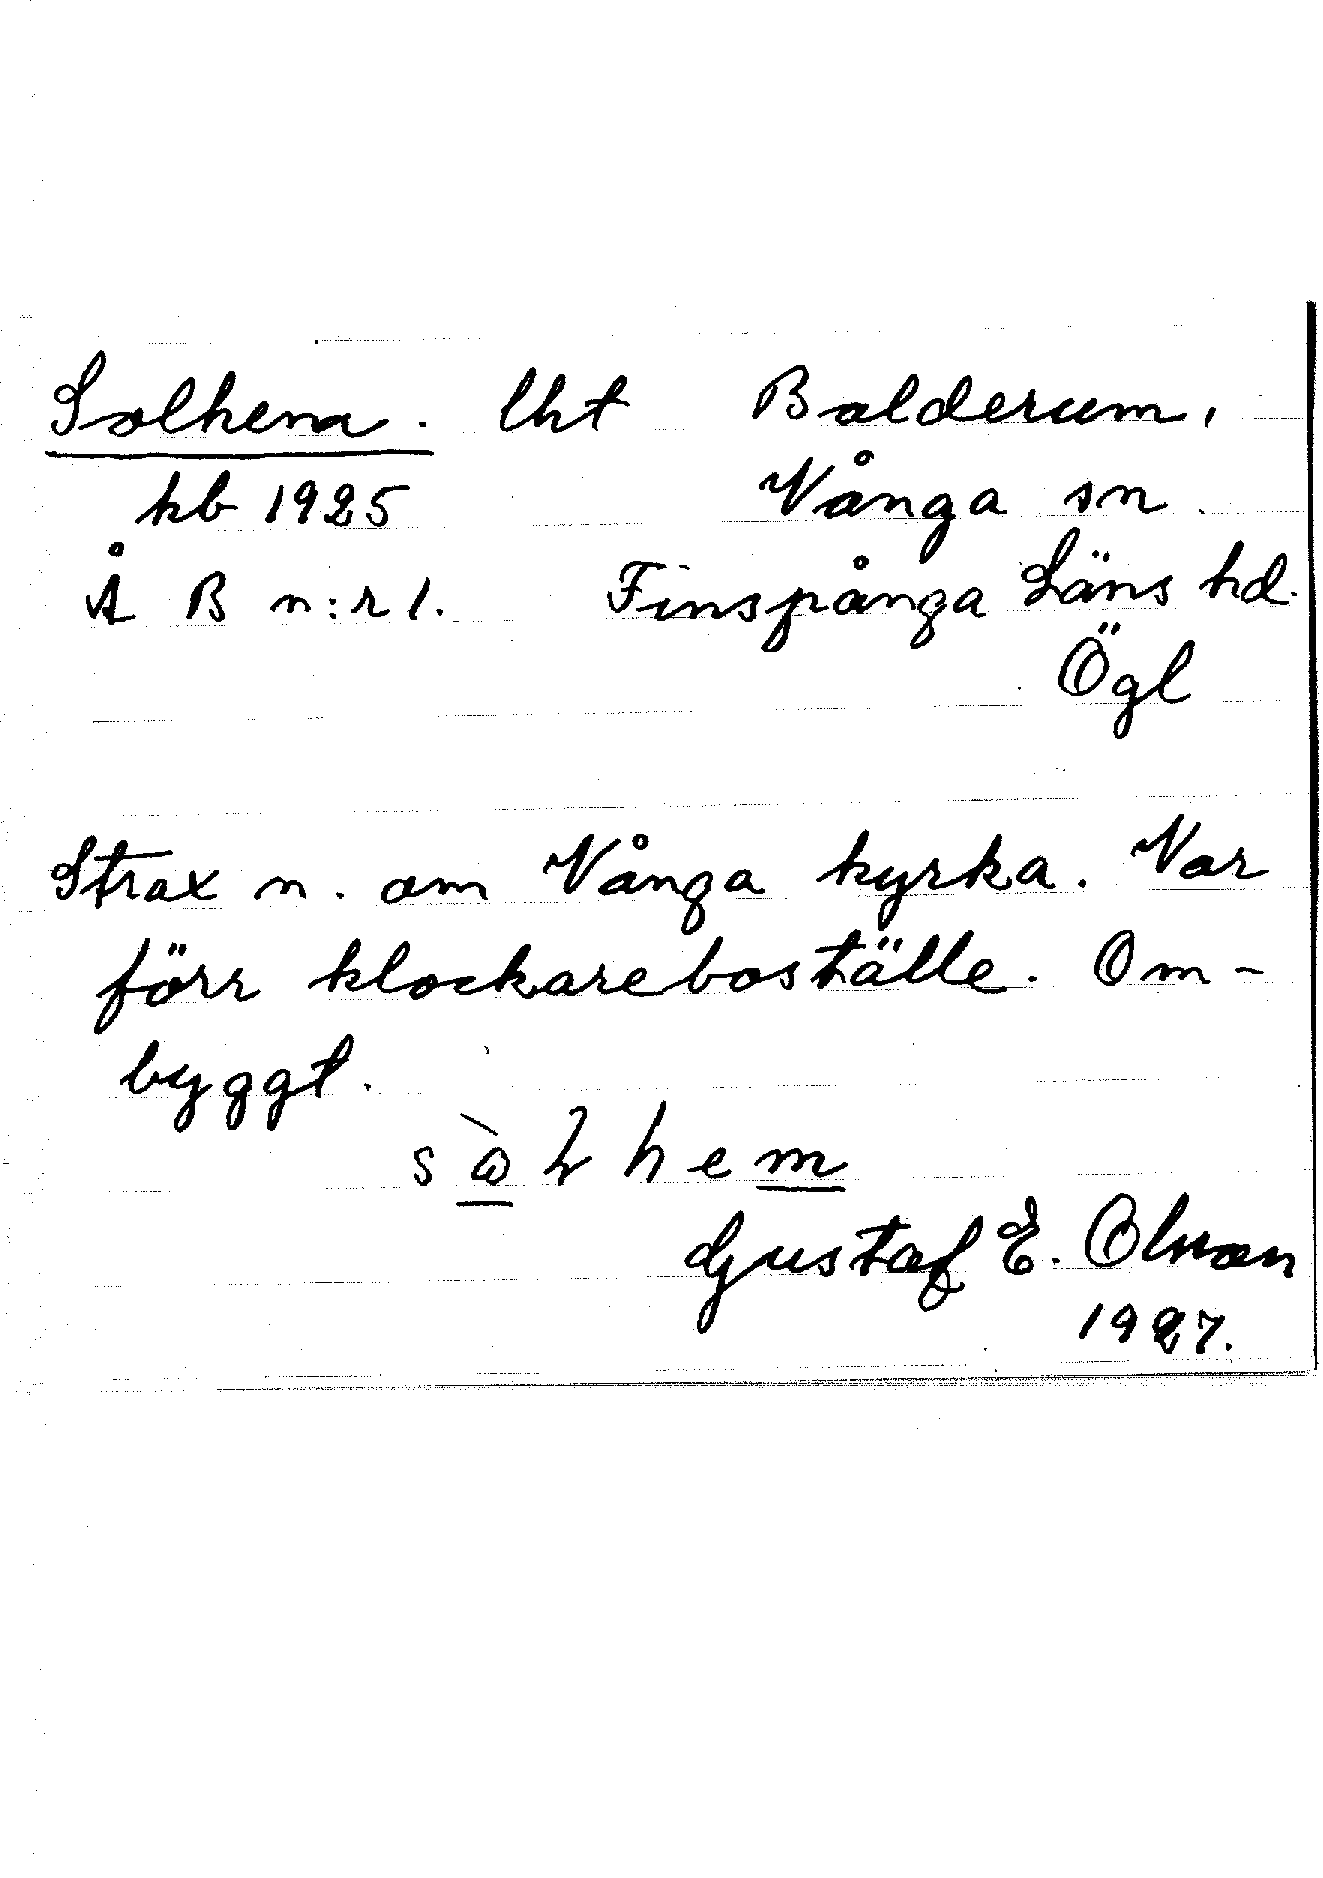 Solhem. lht Balderum,
kb 1925 Vånga sn.
Å B n:r 1. Finspånga Läns hd.
Ögl
Strax n. om Vånga kyrka. Var
förr klockareboställe. Om-
byggt.
Gustaf E. Olson
1927.